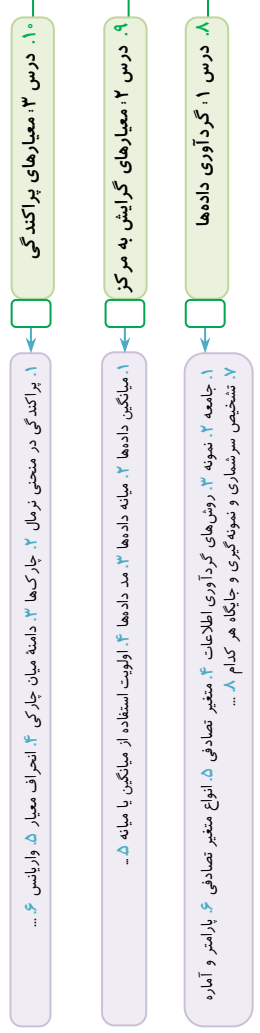 ۸. درس ۱: گردآوری داده‌ها
۱. جامعه ۲. نمونه ۳. روش‌های گردآوری اطلاعات ۴. متغیر تصادفی ۵. انواع متغیر تصادفی ۶. پارامتر و آماره
۷. تشخیص سرشماری و نمونه‌گیری و جایگاه هر کدام ۸. ...
۹. درس ۲: معیارهای گرایش به مرکز
۱. میانگین داده‌ها ۲. میانه داده‌ها ۳. مد داده‌ها ۴. اولویت استفاده از میانگین یا میانه ۵. ...
۱۰. درس ۳: معیارهای پراکندگی
۱. پراکندگی در منحنی نرمال ۲. چارک‌ها ۳. دامنهٔ میان چارکی ۴. انحراف معیار ۵. واریانس ۶. ...